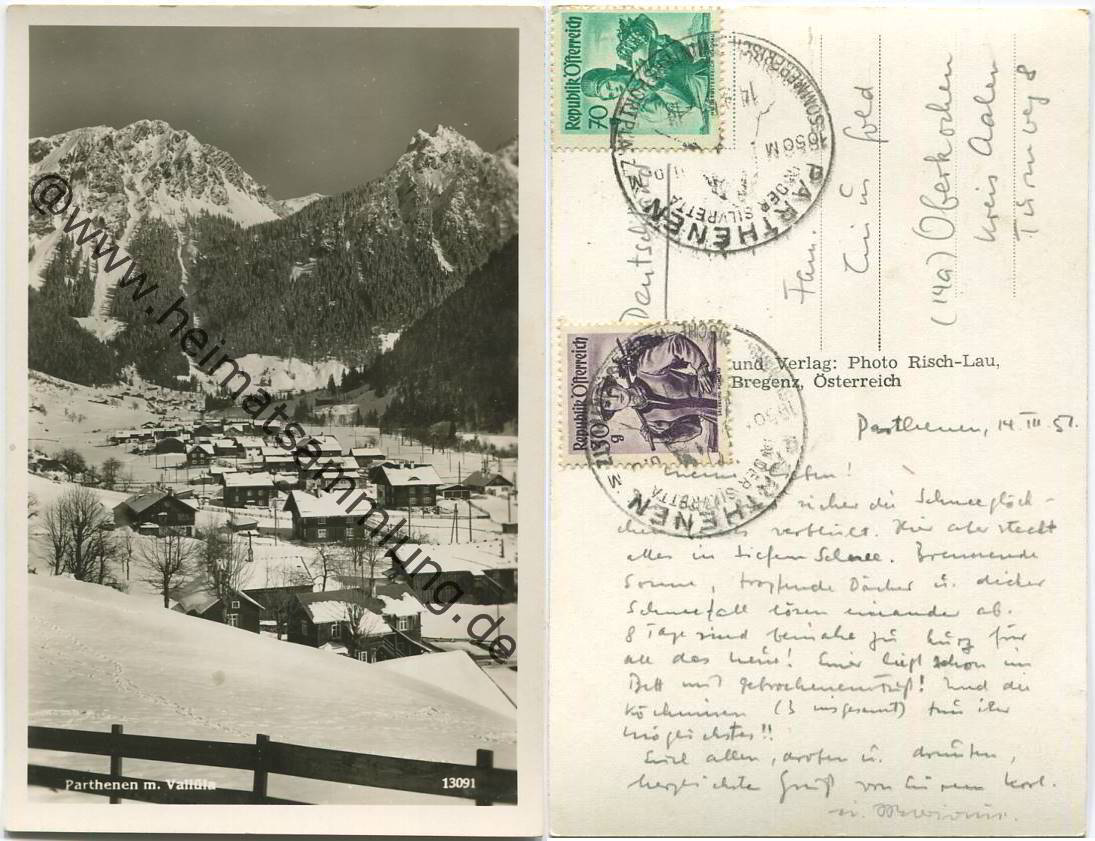 @www.heimatsammlung.de
Parthenen m. Vallüla
13091
Republik Österreich
70
PARTHENEN
AN DER SILVRETTA
1050 M
SOMMERFRISCHE
Republik Österreich
1.30
PARTHENEN
DER SILVRETTA
Fam.
Gold
(14a) Oberkochen
Kreis Aalen
Turmweg 8
Deutschland
und Verlag: Photo Risch-Lau,
Bregenz, Österreich
Parthenen, 14. III. 51.
sicher die Schneeglöck-
verblüht. Hier aber steckt
alles in tiefem Schnee. Brennende
Sonne, tropfende Dächer u. dicker
Schneefall lösen einander ab.
8 Tage sind beinahe zu kurz für
all das Neue! Einer liegt schon im
Bett mit gebrochenem Fuß! Und die
Köchinnen (3 insgesamt) tun ihr
möglichstes!!
Euch allen, droben u. drunten,
herzlichste Grüße von Eurem Karl.
u.